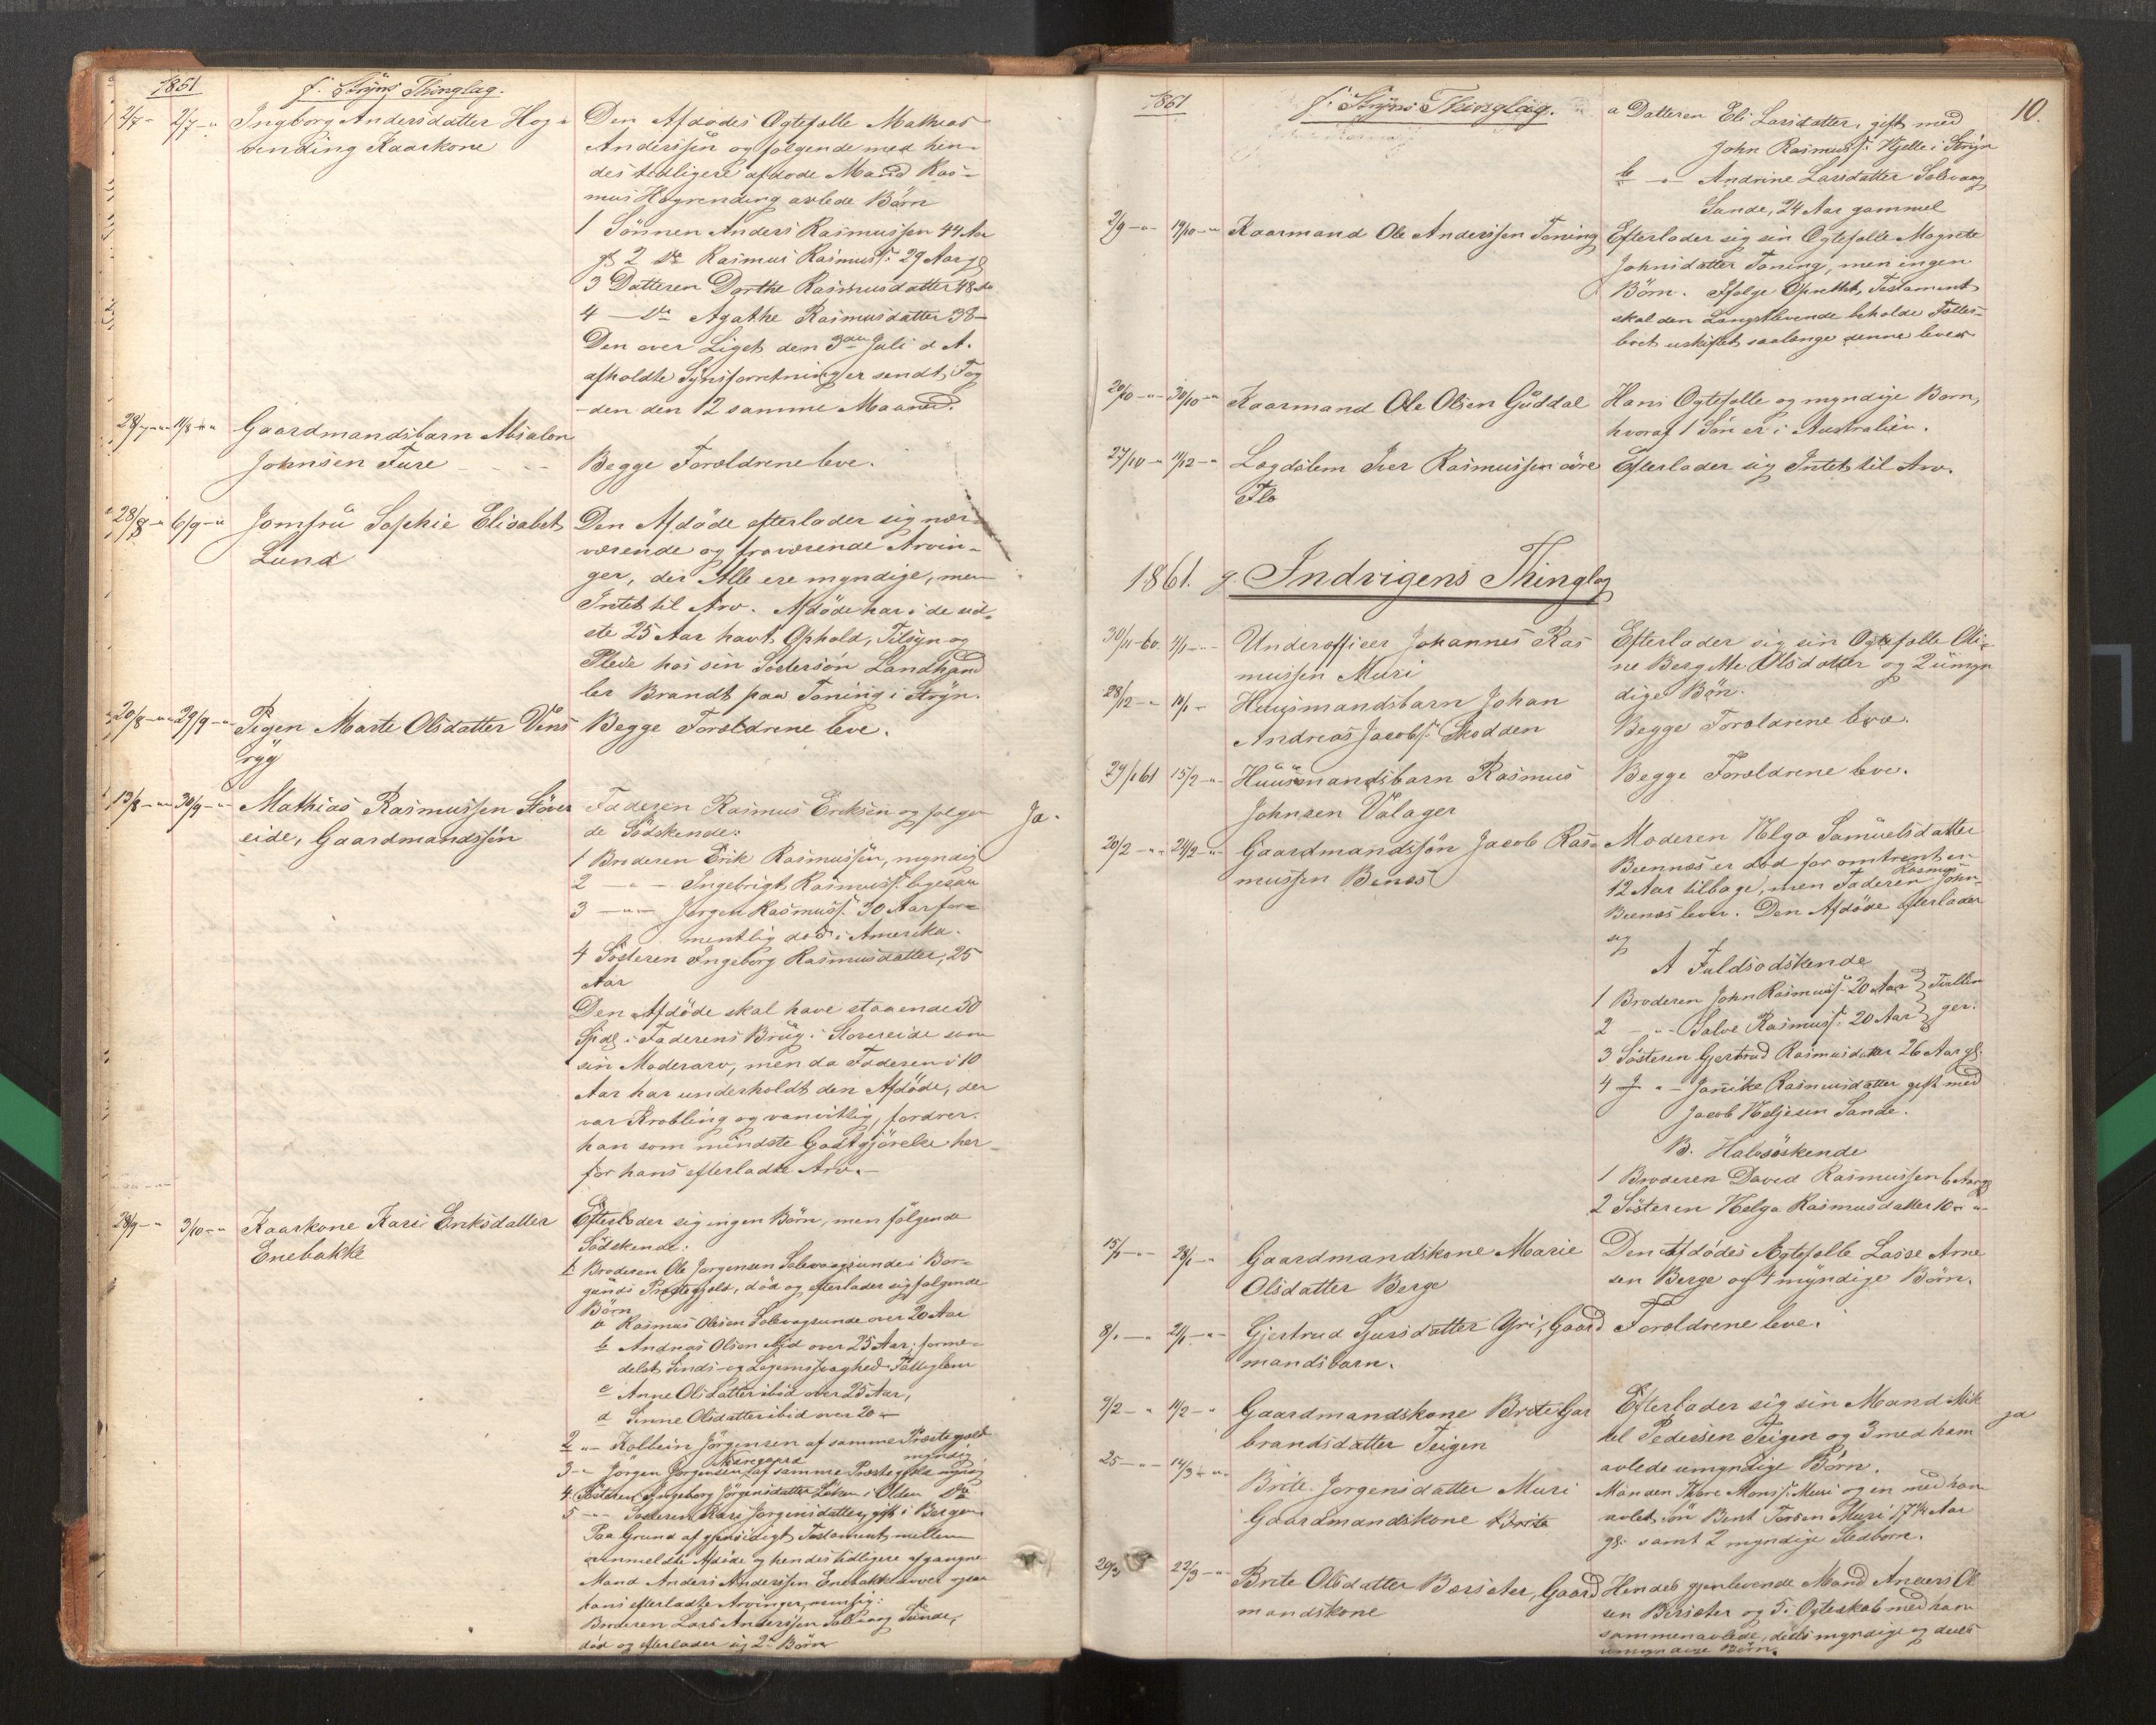 1861
f. Stryns Thinglag.
2/7 - 2/7 - " Ingborg Andersdatter Hog-
vending Kaarkone
Den Afdødes Ogtefolle Mathias
Anderssen og følgende med hen-
des tidligere afdøde Mand Ras-
mus Hogvending avlede Børn
1 Sønnen Anders Rasmussen 44 Aar
gl 2 do Rasmus Rasmuss. 29 Aar gl
3 Datteren Dorthe Rasmusdatter 48 do
4 - do Agathe Rasmusdatter 38 -
Den over Liget den 3die Juli d. A.
afholdte Synsforretning er sendt Fog-
-den den 12 samme Maaned.
28/7 - " 11/8 - " Gaardmandsbarn Absalon
Johnsen Fure - - -
Begge Forældrene leve.
28/8 - " 6/9 - " Jomfru Sophie Elisabet
Lund
Den Afdøde efterlader sig nær-
værende og fraværende Arvin-
ger, der Alle ere myndige, men
Intet til Arv. Afdøde har i de sid-
ste 25 Aar havt Ophold, Tilsyn og
Pleie hos sin Søstersøn Landhand
ler Brandt paa Toning i Stryn.
20/8 - " 29/9 - " Pigen Marte Olsdatter Vins
ryg
Begge Forældrene leve.
13/8 - " 30/9 - " Mathias Rasmussen Støver
eide, Gaardmandssøn
Faderen Rasmus Eriksen og følgen
de Sødskende:
Ja.
1 Broderen Erik Rasmussen, myndig
2 - " - Ingebrigt Rasmuss. ligesaa
3 - " - Jørgen Rasmuss. 30 Aar for-
mentlig død i Amerika.
4 Søsteren Ingeborg Rasmusdatter, 25
Aar
Den Afdøde skal have staaende 50
Spdl i Faderens Brug i Stovereide som
sin Moderarv, men da Faderen i 10
Aar har underholdt den Afdøde, der
var Krøbling og vanvittig, fordrer
han som mindste Godtgjörelse her-
for hans efterladte Arv. -
28/9 - " 3/10 - " Kaarkone Kari Eriksdatter
Enebakke
Efterlader sig ingen Børn, men følgende
Sødskende:
1 Broderen Ole Jørgensen Solevaagsunde i Bor-
gunds Prestegjeld, død og efterlader sig følgende
Børn
a Rasmus Olesen Solevagsunde over 20 Aar
b Andreas Olsen ibid over 25 Aar, forme-
delst Sinds- og Legemssvaghed Fattiglem
c Anne Olsdatter ibid over 25 Aar,
d Sinne Olsdatter ibid over 20 -
2 - " - Kolbein Jörgensen af samme Præstegjeld
myndig
3 - " Jörgen Jörgensen af samme Præstegjeld myndig
4. Søsteren Ingeborg Jörgensdatter i Olden do
5 - " - Søsteren Kari Jorgensdatter, gift i Bergen.
Paa Grund af gjensidigt Testament mellem
anmeldte Afdøde og hendes tidligere afgangne
Mand Anders Anderssen Enebakk arver ogsaa
hans efterladte Arvinger, nemlig:
Broderen Lars Anderssen Solevaag Sunde,
død og efterlader sig 2de Børn
1861
f. Stryns Thinglag.
10.
a Datteren Eli Larsdatter, gift med
John Rasmuss. Hjelle i Stryn
b - " - Andrine Larsdatter Solevaag
Sunde, 24 Aar gammel
2/9 - " - 19/10 - " Kaarmand Ole Anderssen Toning
Efterlader sig sin Ogtefolle Magrete
Johnsdatter Toning, men ingen
Børn. Ifølge Oprettet Testament
skal den Længstlevende beholde Fælles-
boet uskiftet saalænge denne lever
20/10 - " - 30/10 - " Kaarmand Ole Olsen Guddal
Hans Ogtefolle og myndige Børn,
hvoraf 1 Søn er i Australien.
27/10 - " 11/12 - " Lægdslem Iver Rasmussen øvre
Flo
Efterlader sig Intet til Arv.
1861. g. Indvigens Thinglag
30/11-60. 4/1 - " Underofficer Johannes Ras
mussen Muri
Efterlader sig sin Ogtefolle Oli-
ne Bergitte Olsdatter og 2 umyn
dige Børn.
28/12 - " 10/1 - Huusmandsbarn Johan
Andreas Jacobs. Skodden
Begge Forældrene leve.
27/1 61 15/2 - " Huusmandsbarn Rasmus
Johnsen Valager
Begge Forældrene leve.
20/2 - " 24/2 - " Gaardmandssøn Jacob Ras-
mussen Benæs
Moderen Helga Samuelsdatter
Beenæs er død for omtrent
12 Aar tilbage, men Faderen Rasmus John-
Beenæs lever. Den Afdøde efterlader
sig
A Fuldsødskende
1 Broderen John Rasmuss. 20 Aar } Tvillin
2 - " - Salve Rasmuss. 20 Aar } ger.
3 Søsteren Gjertrud Rasmusdatter 26 Aar gl.
4 - " - Jannike Rasmusdatter gift med
Jacob Heljesen Sande.
B. Halvsøskende
1 Broderen David Rasmussen 6 Aar gl
2 Søsteren Helga Rasmusdatter 10 - "
15/1 - " - 28/1 - " Gaardmandskone Marie
Olsdatter Berge
Den Afdødes Ægtefolle Lasse Arne
sen Berge og 4 myndige Børn.
8/1 - " 21/1 - " Gjertrud Sjursdatter Yri, Gaard
mandsbarn.
Forældrene leve.
9/2 - " 11/2 - " Gaardmandskone Brite Gar
brandsdatter Teigen
Efterlader sig sin Mand Mik
kel Pedersen Teigen og 3 med ham
avlede umyndige Børn.
ja
25 - " 14/3 - " Brite Jorgensdatter Muri
Gaardmandskone Brite
Manden Thore Monss. Muri og en med ham
avlet søn Bent Torsen Muri 17 1/2 Aar
gl. samt 2 myndige Stedbørn.
20/3 22/3 - " Brite Olsdatter Bersæter, Gaard
mandskone
Hendes gjenlevende Mand Anders Ol
sen Bersæter og 5 i Ogteskab med ham
sammenavlede, dels myndige og dels
umyndige Børn.